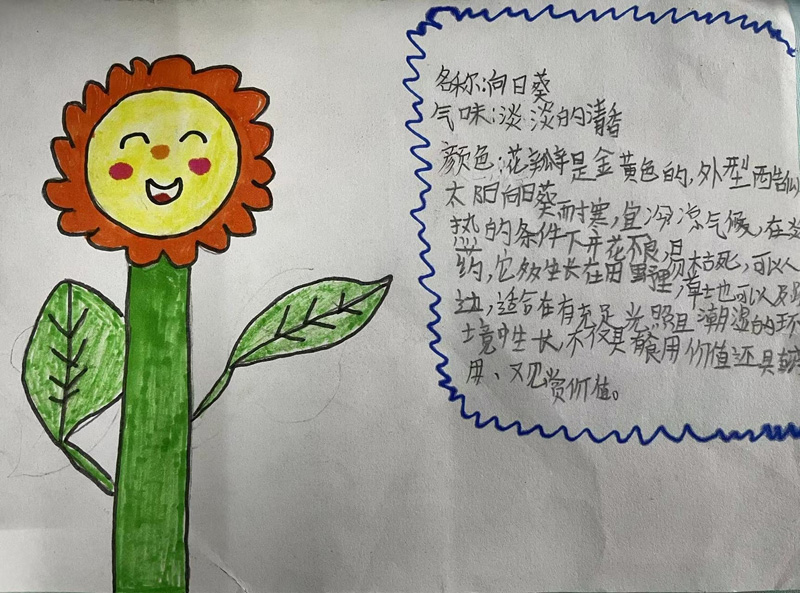 名称:向日葵
气味:淡淡的清香
颜色:花瓣是金黄色的,外型酷似
太阳向日葵耐寒,宜冷凉气候,在炎
热的条件下开花不良,易枯死,可以入
约,它多生长在田野里,岸土也可以及路
边,适合在有充足光照且潮湿的环
境中生长,不仅具有食用价值还具
用、观赏价值。